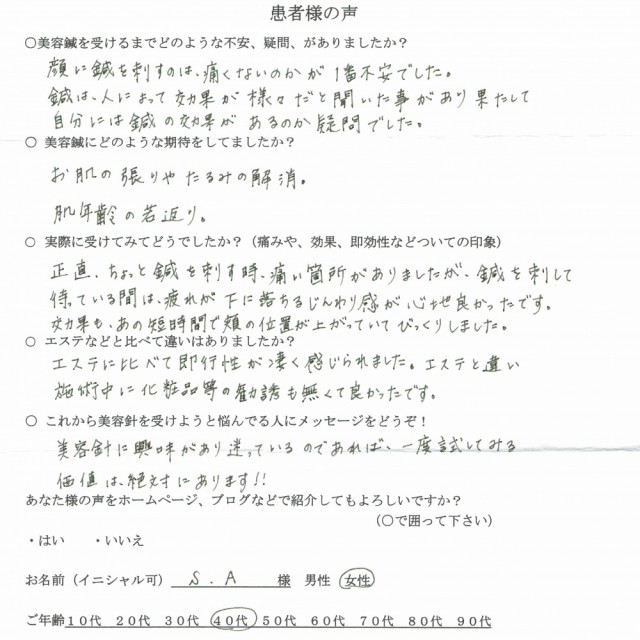 患者様の声
○美容鍼を受けるまでどのような不安、疑問、がありましたか？
顔に鍼を刺すのは、痛くないのかが1番不安でした。
鍼は、人によって効果が様々だと聞いた事があり果たして
自分には鍼の効果があるのか疑問でした。
○ 美容鍼にどのような期待をしてましたか？
お肌の張りやたるみの解消。
肌年齢の若返り。
○ 実際に受けてみてどうでしたか？（痛みや、効果、即効性などついての印象）
正直、ちょっと鍼を刺す時、痛い箇所がありましたが、鍼を刺して
待っている間は、疲れが下に落ちるじんわり感が心地良かったです。
効果も、あの短時間で頬の位置が上がっていてびっくりしました。
○ エステなどと比べて違いはありましたか？
エステに比べて即行性が凄く感じられました。エステと違い
施術中に化粧品等の勧誘も無くて良かったです。
○ これから美容針を受けようと悩んでる人にメッセージをどうぞ！
美容針に興味があり迷っているのであれば、一度試してみる
価値は、絶対にあります!!
あなた様の声をホームページ、ブログなどで紹介してもよろしいですか？
（○で囲って下さい）
・はい ・いいえ
お名前（イニシャル可） S.A 様 男性 女性
ご年齢 10代 20代 30代 40代 50代 60代 70代 80代 90代